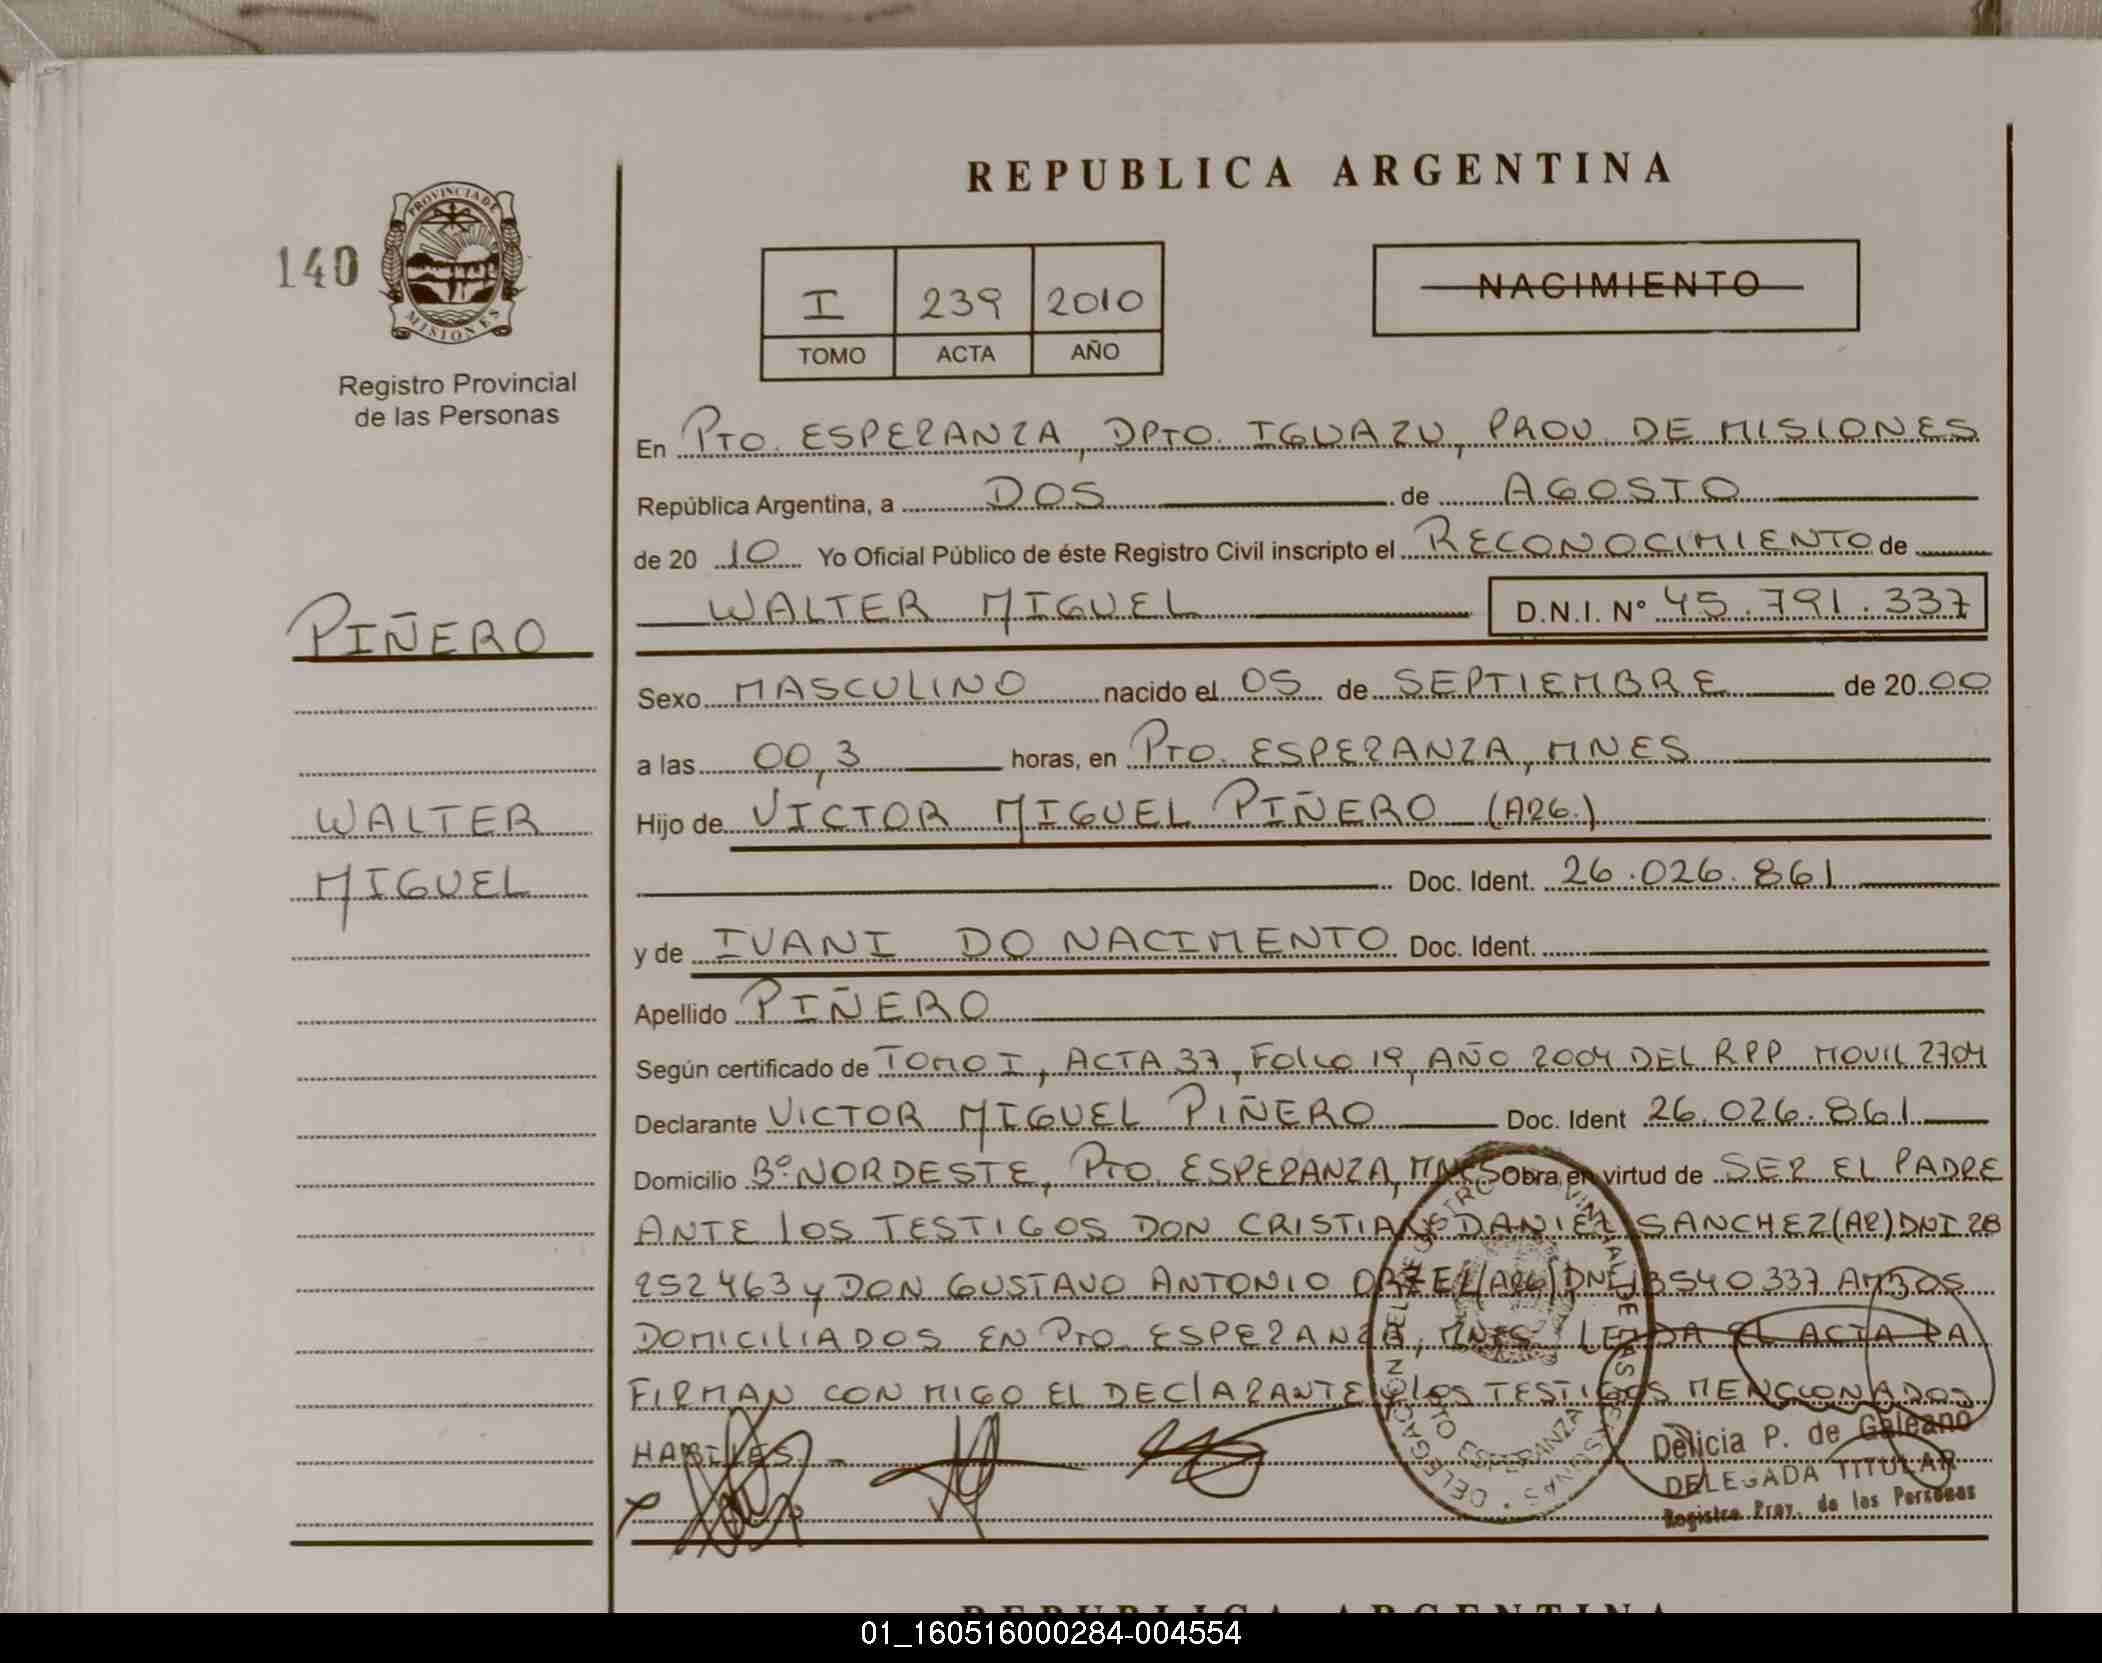 REPUBLICA ARGENTINA
140
PROVINCIA DE
MISIONES
Registro Provincial
de las Personas
I 239 2010
TOMO ACTA AÑO
NACIMIENTO
En PTO. ESPERANZA, DPTO. IGUAZU, PROV. DE MISIONES
República Argentina, a DOS de AGOSTO
de 20 10 Yo Oficial Público de éste Registro Civil inscripto el RECONOCIMIENTO de
WALTER MIGUEL D.N.I. N° 45.791.337
PIÑERO
WALTER
MIGUEL
Sexo MASCULINO nacido el 05 de SEPTIEMBRE de 20 00
a las 00,3 horas, en PTO. ESPERANZA, MNES
Hijo de VICTOR MIGUEL PIÑERO (ARG.)
Doc. Ident. 26.026.861
y de IVANI DO NACIMENTO Doc. Ident.
Apellido PIÑERO
Según certificado de TOMO I, ACTA 37, FOLIO 19, AÑO 2004 DEL R.P.P. MOVIL 2704
Declarante VICTOR MIGUEL PIÑERO Doc. Ident 26.026.861
Domicilio B° NORDESTE, PTO. ESPERANZA, MNES Obra en virtud de SER EL PADRE
ANTE LOS TESTIGOS DON CRISTIAN DANIEL SANCHEZ (AR) DNI 28
252463 y DON GUSTAVO ANTONIO (ARG) DNI 13540337 AMBOS
DOMICILIADOS EN PTO. ESPERANZA, MNES. LEIDA EL ACTA LA
FIRMAN CON MIGO EL DECLARANTE y LOS TESTIGOS MENCIONADOS
HABILES.-
Delicia P. de Galeano
DELEGADA TITULAR
Registro Prov. de las Personas
REPUBLICA ARGENTINA
01_160516000284-004554